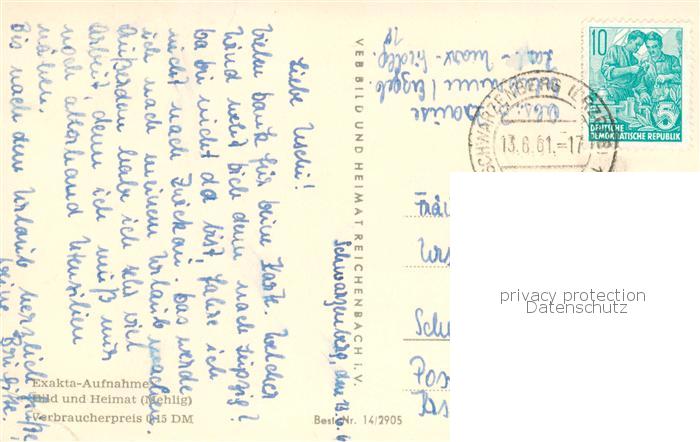 Schwarzenberg, den 13.6.
Liebe Uschi!
Vielen Dank für Deine Karte. Welcher
Wind weht Dich denn nach Leipzig?
Da Du nicht da bist, fahre ich
nicht nach Zwickau. Das werde
ich nach meinem Urlaub machen.
Außerdem habe ich sehr viel
Arbeit, denn ich muß mir
noch allerhand Utensilien
nähen.
Bis nach dem Urlaub herzliche Grüße
Deine Brigitte
Exakta-Aufnahme
Bild und Heimat (Mehlig)
Verbraucherpreis 0,15 DM
Best.-Nr. 14/2905
VEB BILD UND HEIMAT REICHENBACH i. V.
SCHWARZENBERG (ERZGEB)
13.6.61.-17
10
5
DEUTSCHE
DEMOKRATISCHE REPUBLIK
Fräu
Urs
Schu
Pos
privacy protection
Datenschutz